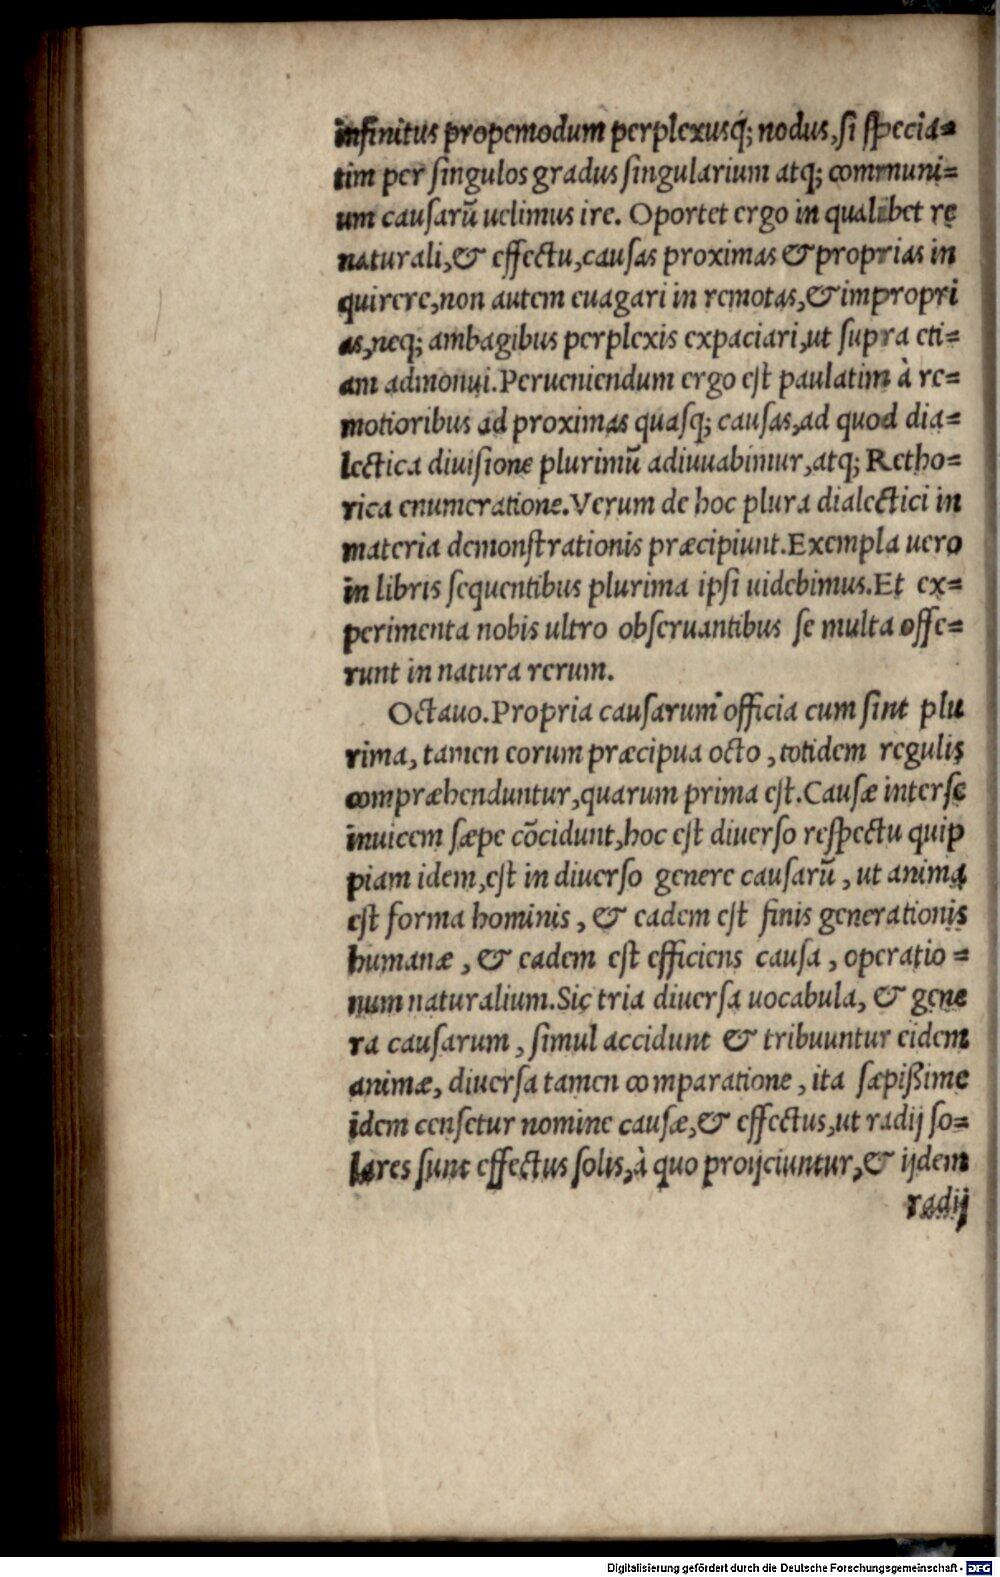 infinitus propemodum perplexusq́; nodus, si specia=
tim per singulos gradus singularium atq; communi=
um causarũ uelimus ire. Oportet ergo in qualibet re
naturali, & effectu, causas proximas & proprias in
quirere, non autem euagari in remotas, & impropri
as, neq; ambagibus perplexis expaciari, ut supra eti=
am admonui. Perueniendum ergo est paulatim à re=
motioribus ad proximas quasq; causas, ad quod dia=
lectica diuisione plurimũ adiuuabimur, atq; Retho=
rica enumeratione. Verum de hoc plura dialectici in
materia demonstrationis præcipiunt. Exempla uero
in libris sequentibus plurima ipsi uidebimus. Et ex=
perimenta nobis ultro obseruantibus se multa offe=
runt in natura rerum.
Octauo. Propria causarum officia cum sint plu
rima, tamen eorum præcipua octo, totidem regulis
compræhenduntur, quarum prima est. Causæ inter se
inuicem sæpe cõcidunt, hoc est diuerso respectu quip
piam idem, est in diuerso genere causarũ, ut anima
est forma hominis, & eadem est finis generationis
humanæ, & eadem est efficiens causa, operatio=
num naturalium. Sic tria diuersa uocabula, & gene
ra causarum, simul accidunt & tribuuntur eidem
animæ, diuersa tamen comparatione, ita sæpißime
idem censetur nomine causæ, & effectus, ut radij so=
lares sunt effectus solis, à quo proijciuntur, & ijdem
radij
Digitalisierung gefördert durch die Deutsche Forschungsgemeinschaft - DFG